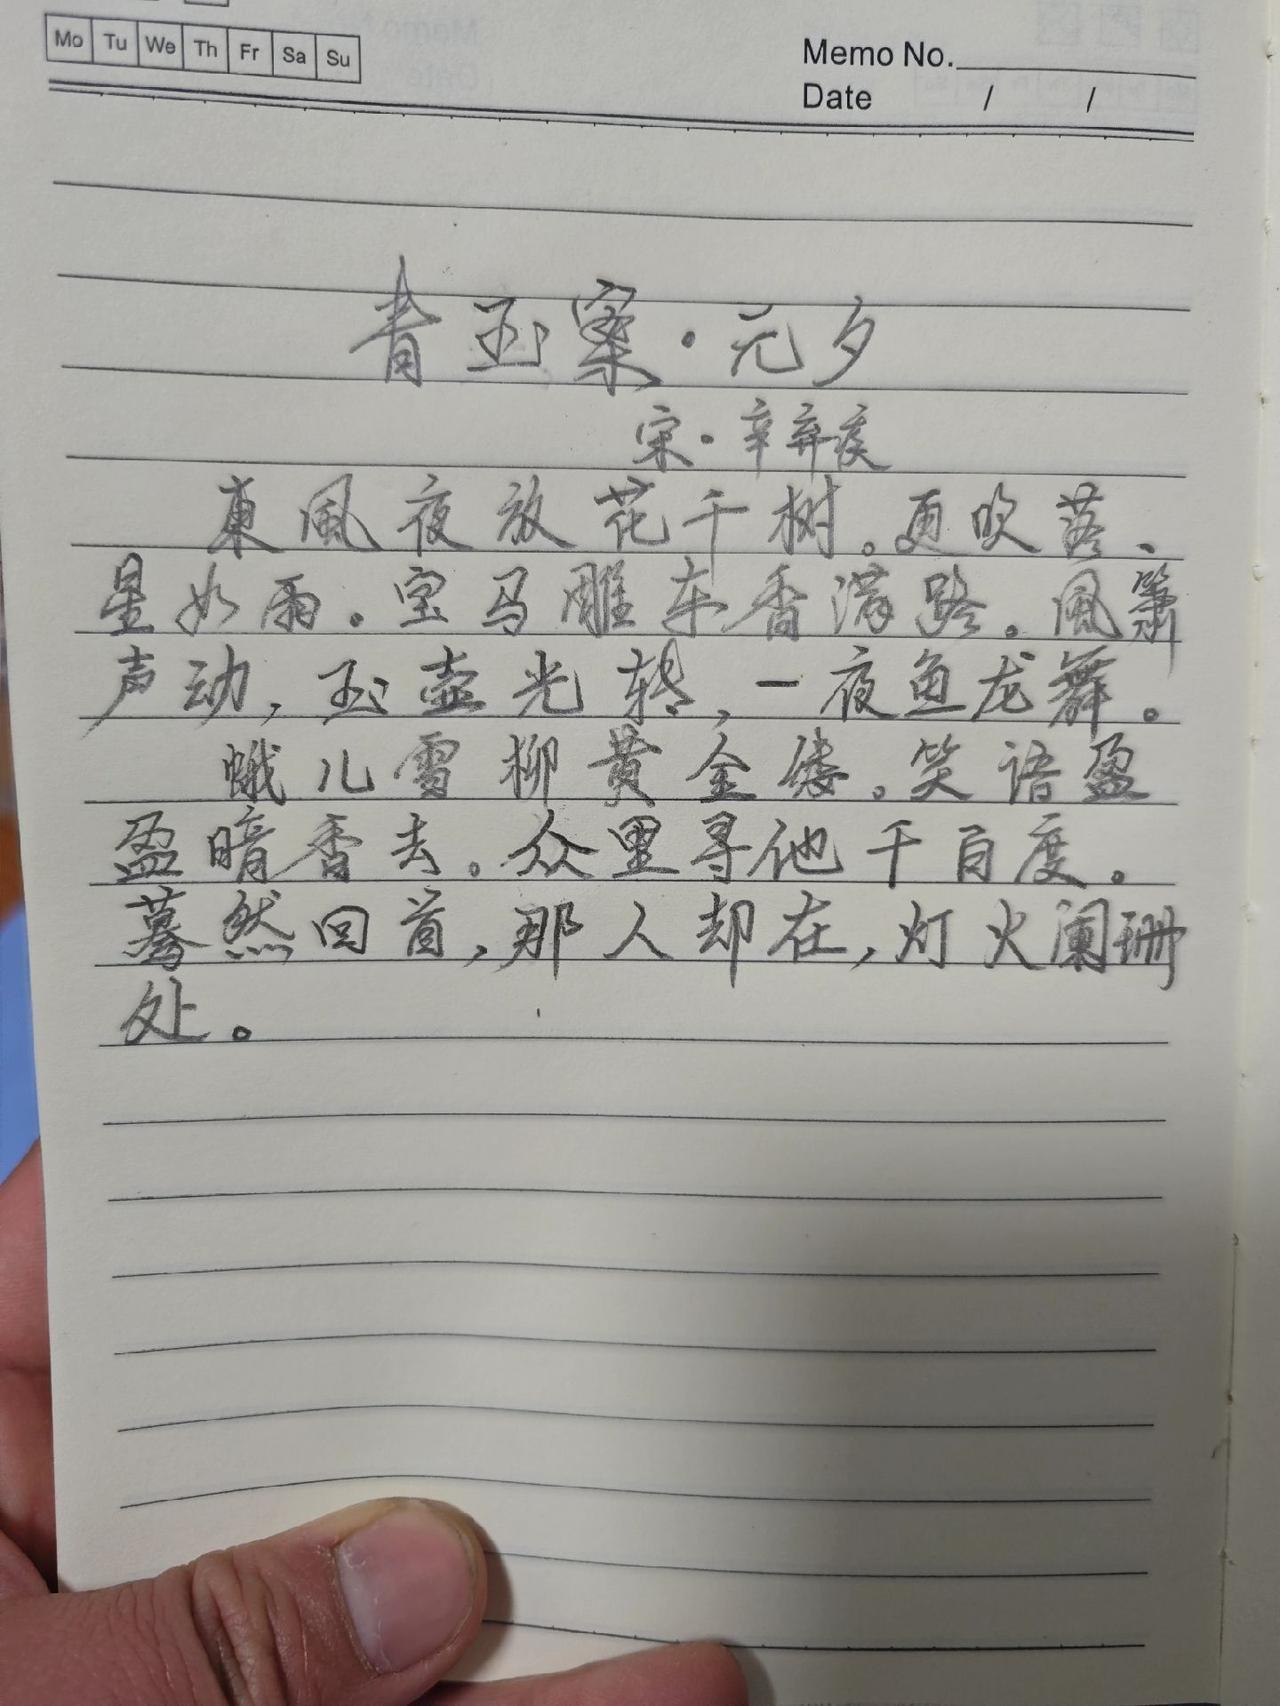 Mo Tu We Th Fr Sa Su
Memo No.
Date / /
青玉案·元夕
宋·辛弃疾
東風夜放花千树。更吹落、
星如雨。宝马雕车香满路。風箫
声动,玉壶光转,一夜鱼龙舞。
蛾儿雪柳黄金缕。笑语盈
盈暗香去。众里寻他千百度。
蓦然回首,那人却在,灯火阑珊
处。